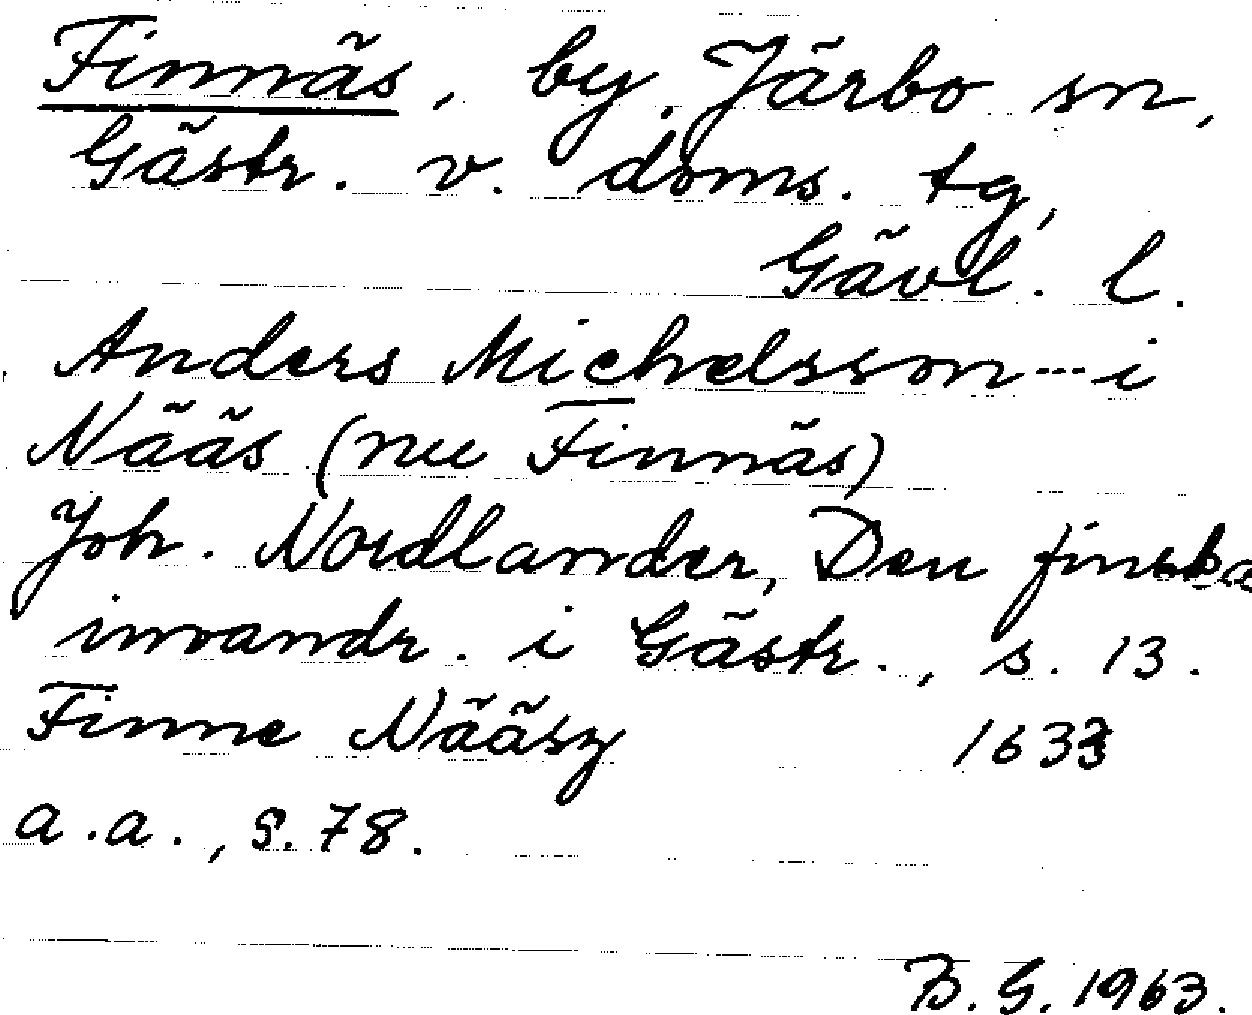 Finnäs, by, Järbo sn,
Gästr. v. doms. tg,
Gävl. l.
Anders Michelsson --- i
Nääs (nu Finnäs)
Joh. Nordlander, Den finska
invandr. i Gästr., s. 13.
Finne Nääsz 1633
a.a., s. 78.
B. G. 1963.